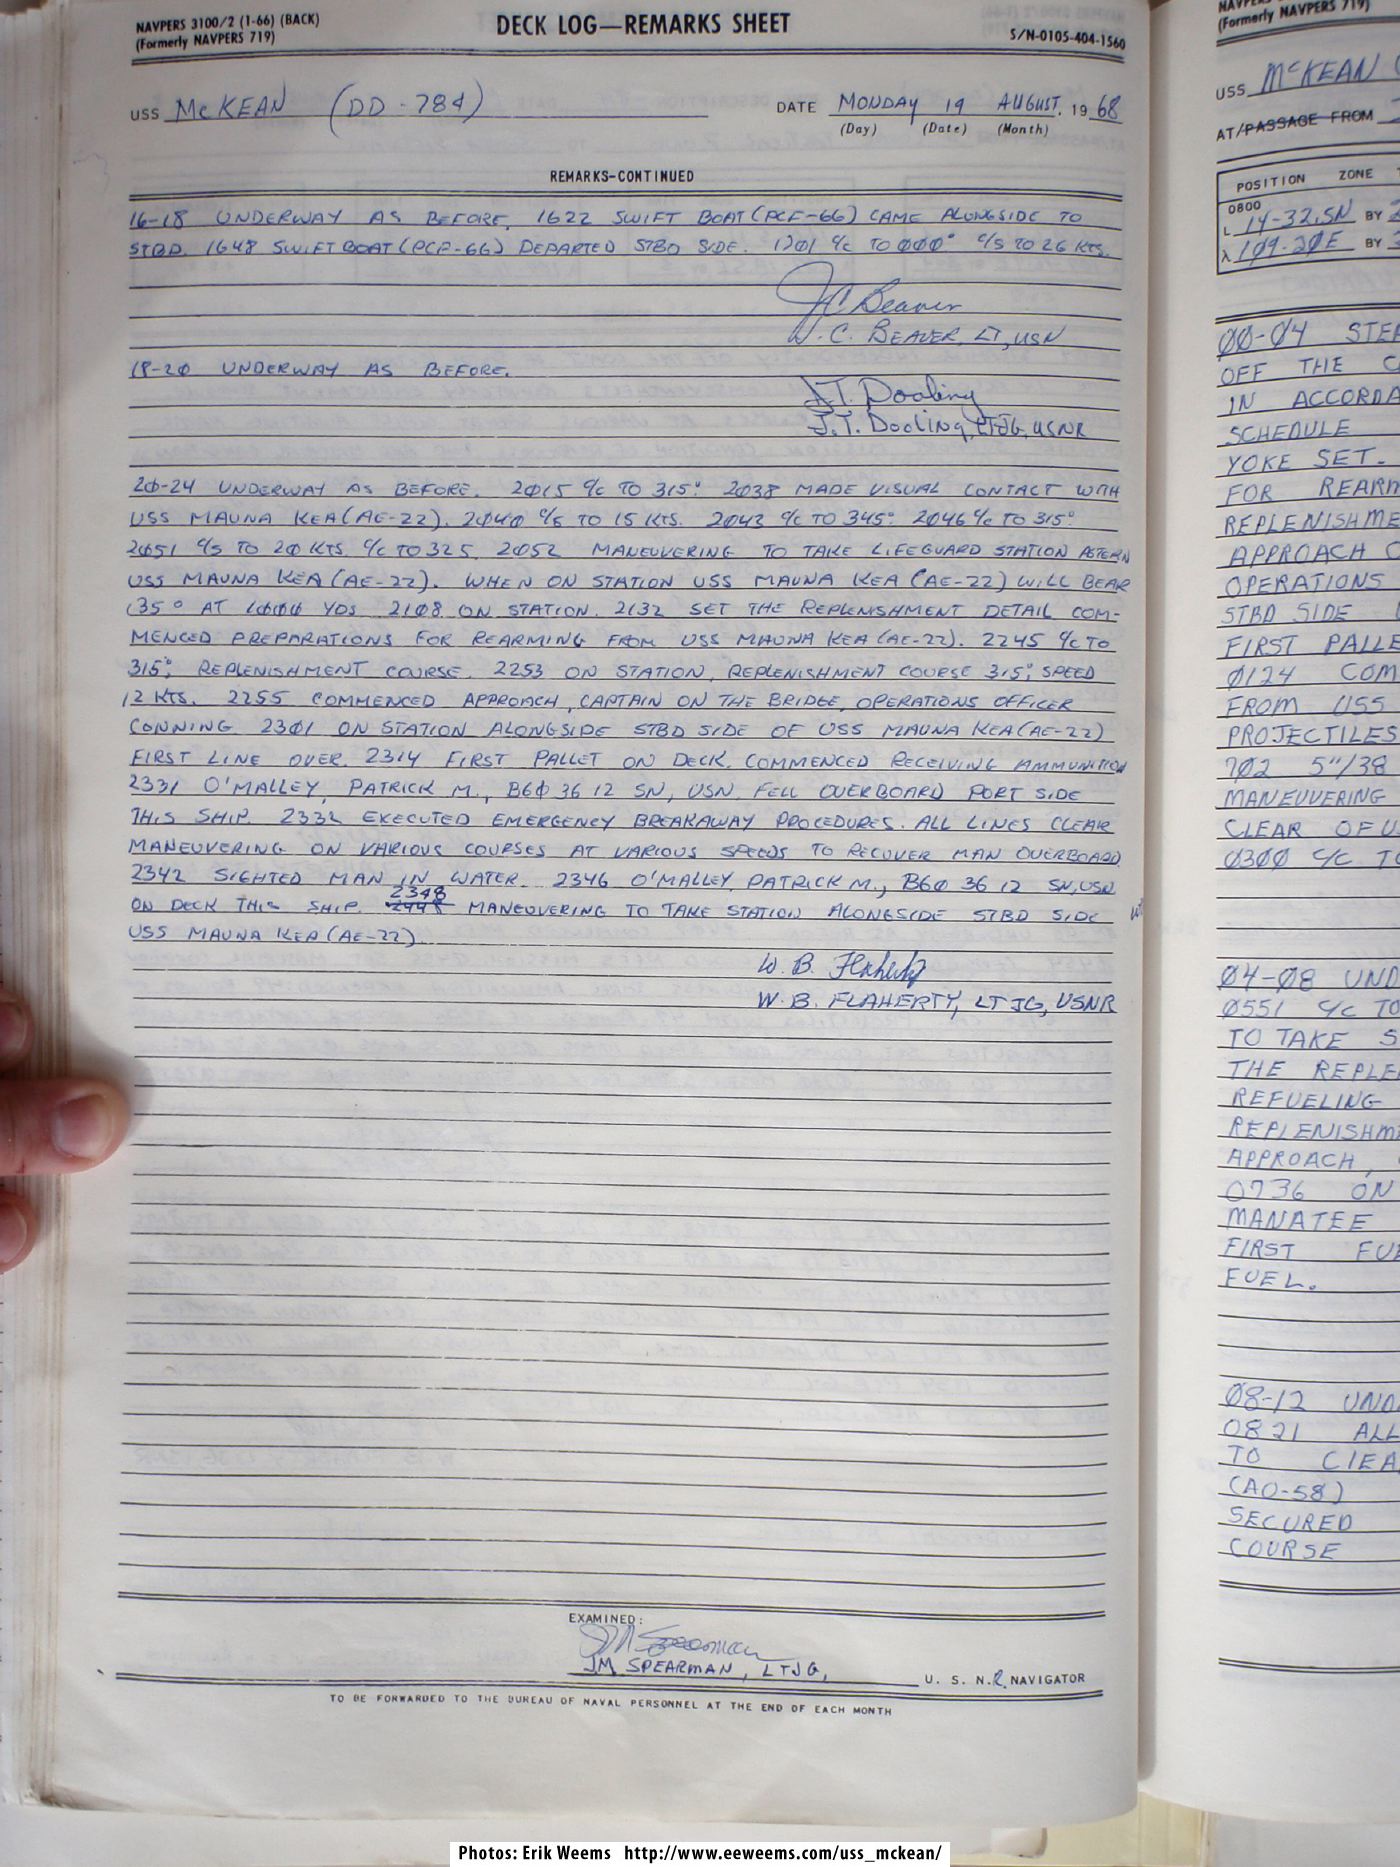 NAVPERS 3100/2 (1-66) (BACK)
(Formerly NAVPERS 719)
DECK LOG—REMARKS SHEET
S/N-0105-404-1560
USS McKEAN (DD-784)
DATE MONDAY 19 AUGUST. 1968
(Day) (Date) (Month)
REMARKS-CONTINUED
16-18 UNDERWAY AS BEFORE. 1622 SWIFT BOAT (PCF-66) CAME ALONGSIDE TO
STBD. 1648 SWIFT BOAT (PCF-66) DEPARTED STBD SIDE. 17Ø1 C/C TO ØØØ° C/S TO 26 KTS.
J C Beaver
C. BEAVER, LT, USN
18-2Ø UNDERWAY AS BEFORE.
J.T. Dooling
J.T. Dooling, LTJG, USNR
2Ø-24 UNDERWAY AS BEFORE. 2Ø15 C/C TO 315° 2Ø38 MADE VISUAL CONTACT WITH
USS MAUNA KEA (AE-22). 2Ø4Ø C/S TO 15 KTS. 2Ø43 C/C TO 345° 2Ø46 C/C TO 315°
2Ø51 C/S TO 2Ø KTS C/C TO 325. 2Ø52 MANEUVERING TO TAKE LIFEGUARD STATION ASTERN
USS MAUNA KEA (AE-22). WHEN ON STATION USS MAUNA KEA (AE-22) WILL BEAR
135° AT 1ØØØ YDS 21Ø8 ON STATION. 2132 SET THE REPLENISHMENT DETAIL COM-
MENCED PREPARATIONS FOR REARMING FROM USS MAUNA KEA (AE-22). 2245 C/C TO
315°, REPLENISHMENT COURSE. 2253 ON STATION, REPLENISHMENT COURSE 315°, SPEED
12 KTS. 2255 COMMENCED APPROACH, CAPTAIN ON THE BRIDGE, OPERATIONS OFFICER
CONNING 23Ø1 ON STATION ALONGSIDE STBD SIDE OF USS MAUNA KEA (AE-22)
FIRST LINE OVER. 2314 FIRST PALLET ON DECK. COMMENCED RECEIVING AMMUNITION
2331 O'MALLEY, PATRICK M., B6Ø 36 12 SN, USN. FELL OVERBOARD PORT SIDE
THIS SHIP. 2332 EXECUTED EMERGENCY BREAKAWAY PROCEDURES. ALL LINES CLEAR
MANEUVERING ON VARIOUS COURSES AT VARIOUS SPEEDS TO RECOVER MAN OVERBOARD
2342 SIGHTED MAN IN WATER. 2346 O'MALLEY, PATRICK M., B6Ø 36 12 SN, USN
ON DECK THIS SHIP. 2348 MANEUVERING TO TAKE STATION ALONGSIDE STBD SIDE
USS MAUNA KEA (AE-22)
W. B. Flaherty
W. B. FLAHERTY, LTJG, USNR
EXAMINED:
JM Spearman
JM SPEARMAN, LTJG,
U. S. N.R. NAVIGATOR
TO BE FORWARDED TO THE BUREAU OF NAVAL PERSONNEL AT THE END OF EACH MONTH
(Formerly NAVPERS 719)
USS McKEAN
AT/PASSAGE FROM
POSITION ZONE
0800
L 14-32.5N BY
λ 109-20E BY
ØØ-Ø4
OFF THE
IN
SCHEDULE
YOKE SET.
FOR
APPROACH
OPERATIONS
STBD SIDE
FIRST
Ø124
FROM USS
PROJECTILES
7Ø2 5"/38
MANEUVERING
CLEAR OF
Ø3ØØ C/C TO
Ø4-Ø8
Ø551 C/C TO
TO TAKE
THE
REFUELING
APPROACH,
Ø736 ON
MANATEE
FIRST
FUEL.
Ø8-12
Ø821 ALL
TO
(AO-58)
SECURED
COURSE
Photos: Erik Weems http://www.eeweems.com/uss_mckean/